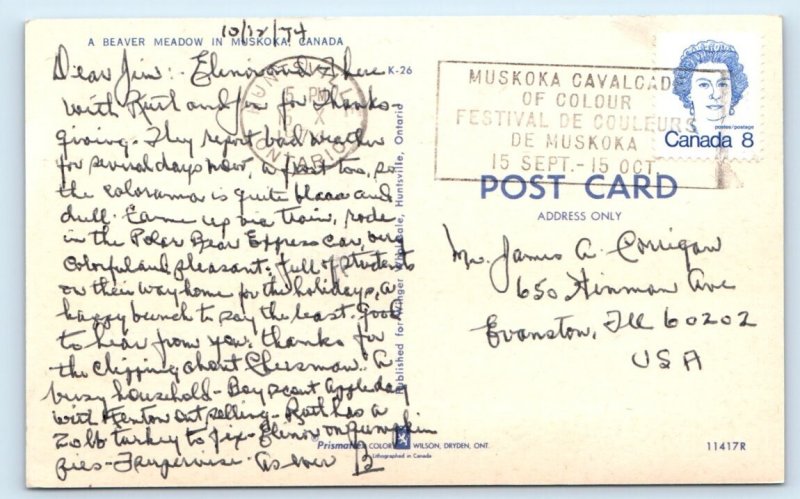 10/12/74
A BEAVER MEADOW IN MUSKOKA, CANADA
K-26
Dear Jim: Elinor and I here
with Ruth and Jim for thanks
giving. They report bad weather
for several days now, a frost too, so
the colorama is quite blaaa and
dull. Came up via train, rode
in the Polar Bear Express car, very
colorful and pleasant; full of students
on their way home for the holidays, a
happy bunch to say the least. Good
to hear from you. Thanks for
the clipping about Chessman. A
busy household - Boy scout apple day
with Kenton out selling - Ruth has a
20 lb turkey to fix - Elinor on pumpkin
pies - I supervise. As ever B
HUNTSVILLE
5 PM
X
ONTARIO
Published for Wholesale, Huntsville, Ontario
MUSKOKA CAVALCADE
OF COLOUR
FESTIVAL DE COULEURS
DE MUSKOKA
15 SEPT. - 15 OCT.
postes/postage
Canada 8
POST CARD
ADDRESS ONLY
Mr. James A. Corrigan
650 Hinman Ave
Evanston, Ill 60202
USA
COLOR WILSON, DRYDEN, ONT.
Lithographed in Canada
11417R